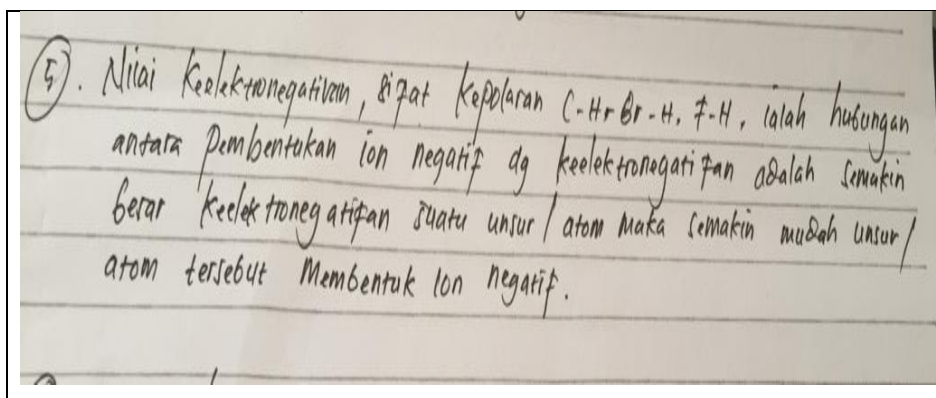 5). Nilai Keelektronegativan, sifat kepolaran C-Hr Br-H, F-H, ialah hubungan
antara pembentukan ion negatif dg keelektronegatifan adalah semakin
berar keelektronegatifan suatu unsur / atom maka semakin mudah unsur /
atom tersebut Membentuk Ion negatif.